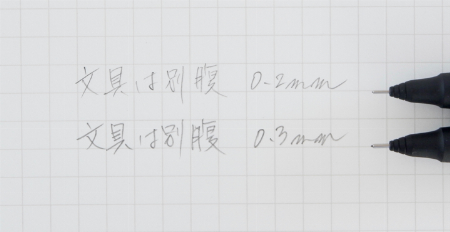 文具は別腹 0.2mm
文具は別腹 0.3mm